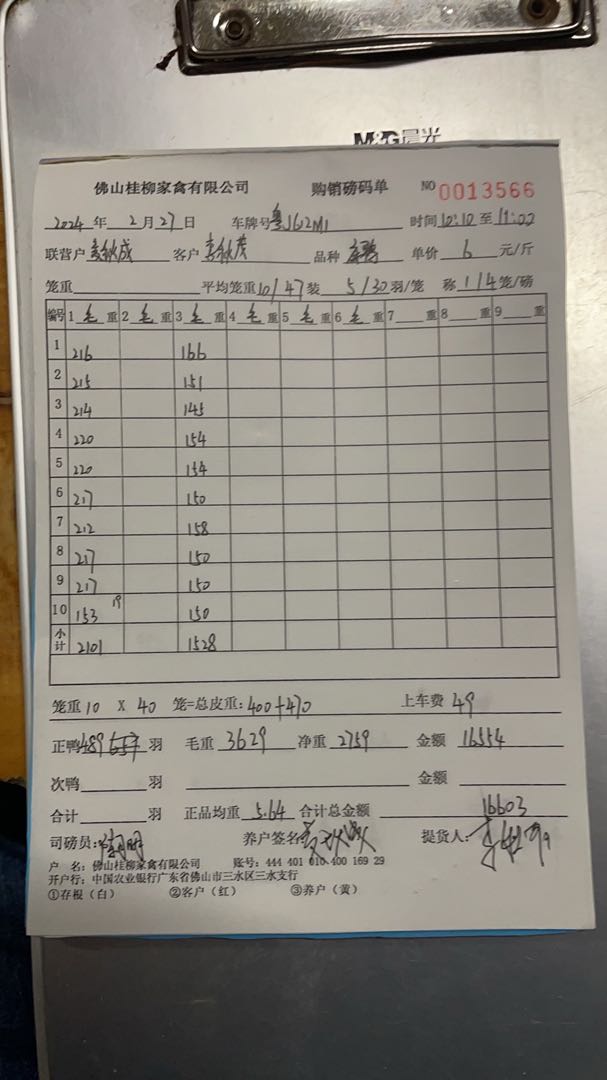 M&G晨光
佛山桂柳家禽有限公司 购销磅码单 NO 0013566
2024 年 2 月 27 日 车牌号 粤J612M1 时间 10:10 至 11:00
联营户 客户 品种 单价 6 元/斤
笼重 平均笼重 10/47 装 5/30 羽/笼 称 1/4 笼/磅
编号 1 毛 重 2 毛 重 3 毛 重 4 毛 重 5 毛 重 6 毛 重 7 重 8 重 9 重
1 216 166
2 215 151
3 214 145
4 220 154
5 220 154
6 217 150
7 212 158
8 217 150
9 217 150
10 153 19 150
小计 2101 1528
笼重 10 X 40 笼=总皮重: 400+470 上车费 49
正鸭 489 羽 毛重 3629 净重 2759 金额 16554
次鸭 羽 金额
合计 羽 正品均重 5.64 合计总金额 16603
司磅员: 养户签名: 提货人:
户 名: 佛山桂柳家禽有限公司 账号: 444 401 010 400 169 29
开户行: 中国农业银行广东省佛山市三水区三水支行
①存根（白） ②客户（红） ③养户（黄）